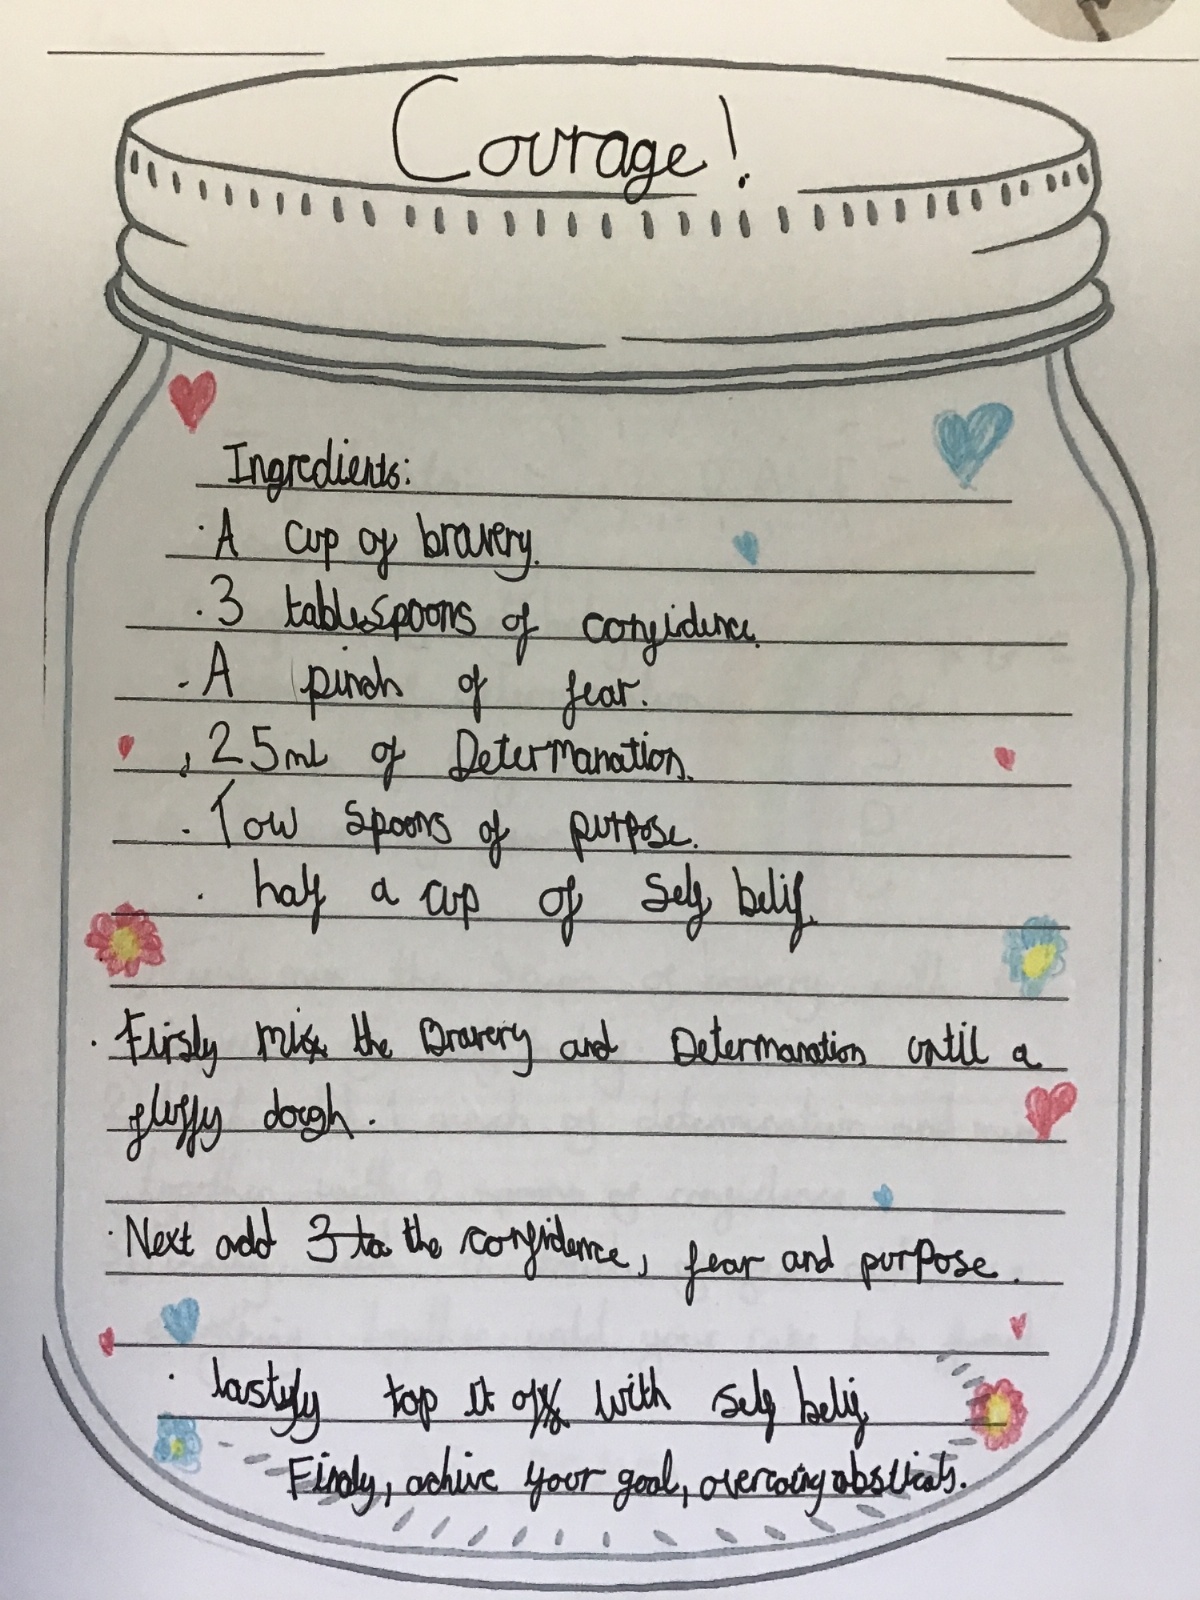 Courage!
Ingredients:
· A cup of bravery.
· 3 tablespoons of confidence.
- A pinch of fear.
· 25ml of Determanation.
· Tow spoons of purpose.
· half a cup of Self belif.
· Firsly mix the Bravery and Determanation until a
fluffy dough.
· Next add 3 to the confidence, fear and purpose.
· lastyly top it off with self belif
Finaly, achive your goal, overcoing obsticals.